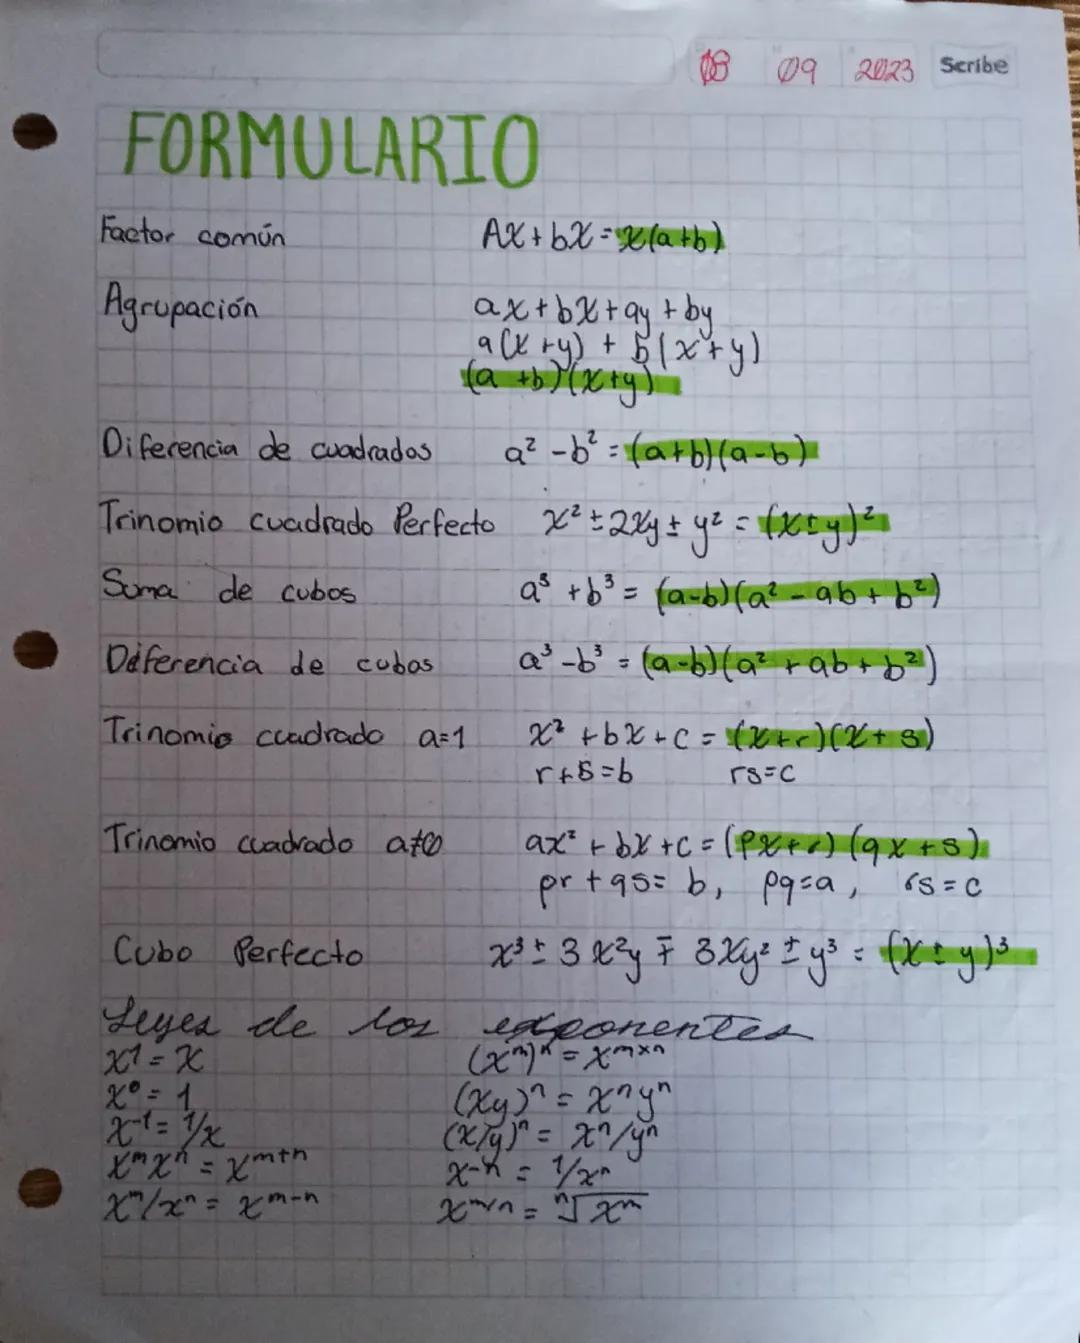 08 09 2023 Scribe
FORMULARIO
Factor común Ax+bx=x(a+b)
Agrupación ax+bx+ay+by
a(x+y) + b(x+y)
(a+b)(x+y)
Diferencia de cuadrados a² - b² = (a+b)(a-b)
Trinomio cuadrado Perfecto x² ± 2xy ± y² = (x±y)²
Suma de cubos a³ + b³ = (a-b)(a² - ab + b²)
Diferencia de cubos a³ - b³ = (a-b)(a² + ab + b²)
Trinomio cuadrado a=1 x² + bx + c = (x+r)(x+s)
r+s=b rs=c
Trinomio cuadrado a≠0 ax² + bx + c = (px+r)(qx+s)
pr + qs = b, pq=a, rs=c
Cubo Perfecto x³ ± 3x²y ∓ 3xy² ± y³ = (x ± y)³
Leyes de los exponentes
x¹ = x (xᵐ)ⁿ = xᵐˣⁿ
x⁰ = 1 (xy)ⁿ = xⁿyⁿ
x⁻¹ = 1/x (x/y)ⁿ = xⁿ/yⁿ
xᵐxⁿ = xᵐ⁺ⁿ x⁻ⁿ = 1/xⁿ
xᵐ/xⁿ = xᵐ⁻ⁿ x^m/n = ⁿ√xᵐ